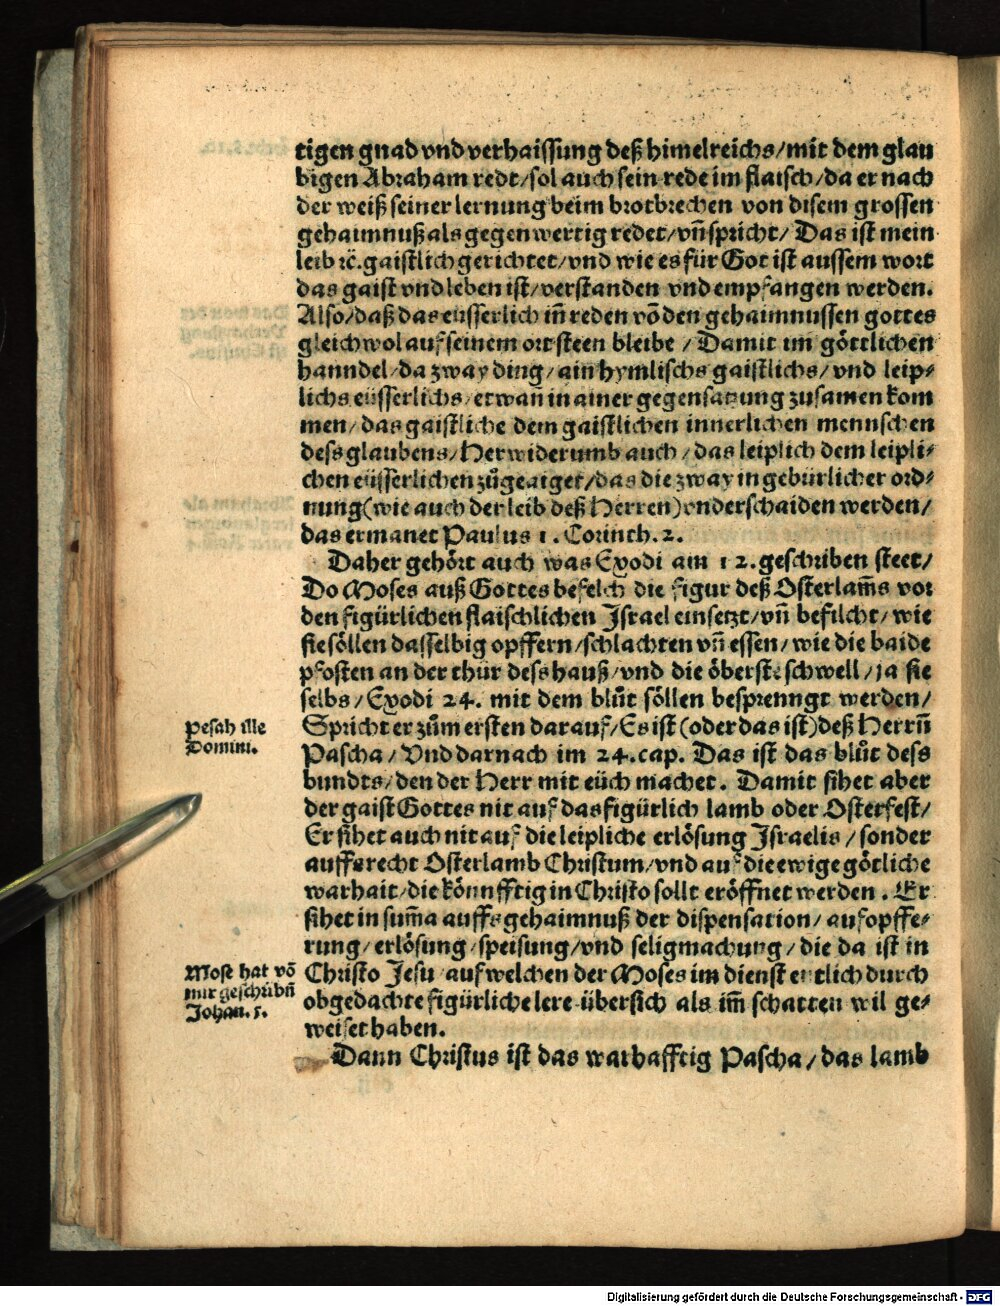 tigen gnad vnd verhaissung deß himelreichs/mit dem glau
bigen Abraham redt/sol auch sein rede im flaisch/da er nach
der weiß seiner lernung beim brotbrechen von disem grossen
gehaimnuß als gegenwertig redet/vñ spricht/ Das ist mein
leib ꝛc̃. gaistlich gerichtet/vnd wie es für Got ist aussem wort
das gaist vnd leben ist/verstanden vnd empfangen werden.
Also/daß das eüsserlich iñ reden võ den gehaimnussen gottes
gleichwol auf seinem ort steen bleibe / Damit im göttlichen
hanndel/da zway ding/ain hymlischs gaistlichs/vnd leip⸗
lichs eüsserlichs/etwañ in ainer gegensatzung zusamen kom
men/das gaistliche dem gaistlichen innerlichen mennschen
dess glaubens/Herwiderumb auch/das leiplich dem leipli⸗
chen eüsserlichen zůgeaiget/das die zway in gebürlicher ord⸗
nung(wie auch der leib deß Herren)vnderschaiden werden/
das ermanet Paulus 1. Corinth. 2.
Daher gehört auch was Exodi am 12. geschriben steet/
Do Moses auß Gottes befelch die figur deß Osterlam̃s vor
den figürlichen flaischlichen Israel einsetzt/vñ befilcht/wie
sie söllen dasselbig opffern/schlachten vñ essen/wie die baide
pfosten an der thür dess hauß/vnd die öberste schwell/ja sie
selbs/Exodi 24. mit dem blůt söllen besprenngt werden/
Pesah ille
Domini.
Spricht er zům ersten darauf/Es ist(oder das ist)deß Herrñ
Pascha/Vnd darnach im 24.cap. Das ist das blůt dess
bundts/den der Herr mit eüch machet. Damit sihet aber
der gaist Gottes nit auf das figürlich lamb oder Osterfest/
Er sihet auch nit auf die leipliche erlösung Israelis/sonder
auffs recht Osterlamb Christum/vnd auf die ewige götliche
warhait/die könnfftig in Christo sollt eröffnet werden. Er
sihet in sum̃a auffs gehaimnuß der dispensation/aufopffe⸗
rung/erlösung/speisung/vnd seligmachung/die da ist in
Mose hat võ
mir geschribñ
Johan. 5.
Christo Jesu/auf welchen der Moses im dienst entlich durch
obgedachte figürliche lere übersich als im̃ schatten wil ge⸗
weiset haben.
Dann Christus ist das warhafftig Pascha/das lamb
Digitalisierung gefördert durch die Deutsche Forschungsgemeinschaft - DFG